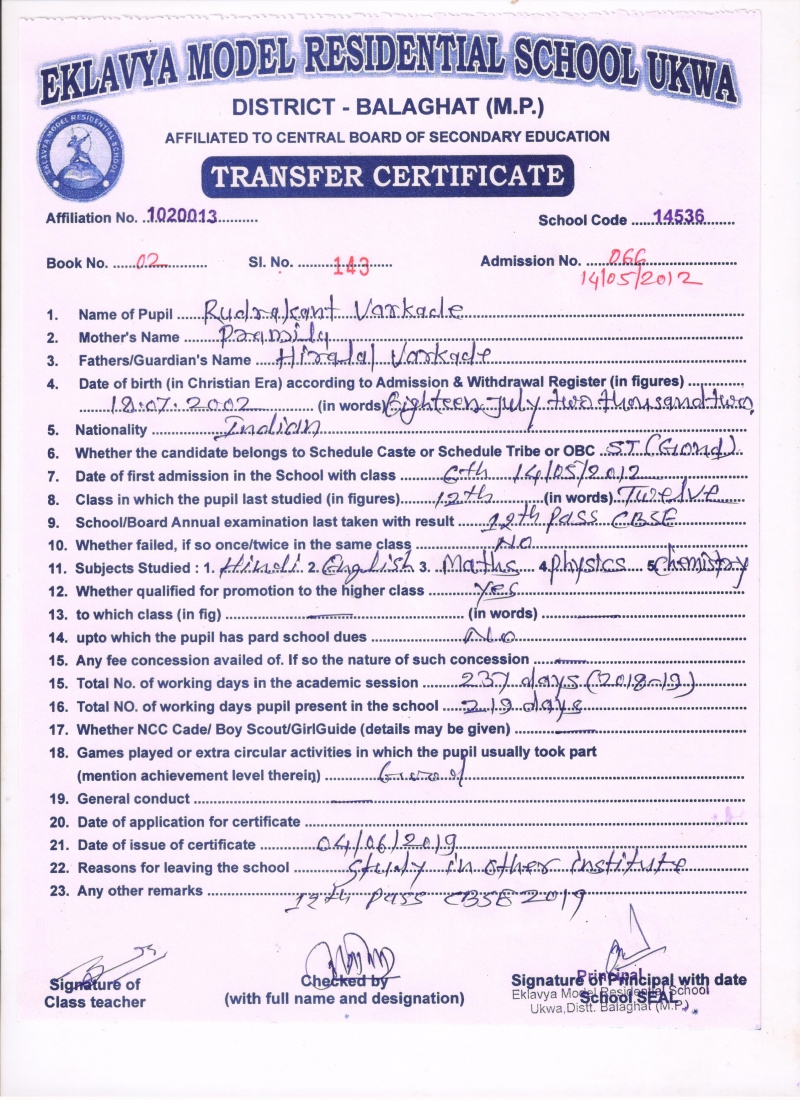 EKLAVYA MODEL RESIDENTIAL SCHOOL UKWA
DISTRICT - BALAGHAT (M.P.)
EKLAVYA MODEL RESIDENTIAL SCHOOL
AFFILIATED TO CENTRAL BOARD OF SECONDARY EDUCATION
TRANSFER CERTIFICATE
Affiliation No. 1020013 School Code 14536
Book No. 02 Sl. No. 143 Admission No. 066
14/05/2012
1. Name of Pupil Rudrakant Varkade
2. Mother's Name Pramila
3. Fathers/Guardian's Name Hiralal Varkade
4. Date of birth (in Christian Era) according to Admission & Withdrawal Register (in figures)
18.07.2002 (in words) Eighteen July two thousand two
5. Nationality Indian
6. Whether the candidate belongs to Schedule Caste or Schedule Tribe or OBC ST (Gond)
7. Date of first admission in the School with class 6th 14/05/2012
8. Class in which the pupil last studied (in figures) 12th (in words) Twelve
9. School/Board Annual examination last taken with result 12th Pass CBSE
10. Whether failed, if so once/twice in the same class No
11. Subjects Studied : 1. Hindi 2. English 3. Maths 4 Physics 5 Chemistry
12. Whether qualified for promotion to the higher class Yes
13. to which class (in fig) — (in words) —
14. upto which the pupil has pard school dues No
15. Any fee concession availed of. If so the nature of such concession —
15. Total No. of working days in the academic session 237 days (2018-19)
16. Total NO. of working days pupil present in the school 219 days
17. Whether NCC Cade/ Boy Scout/GirlGuide (details may be given) —
18. Games played or extra circular activities in which the pupil usually took part
(mention achievement level therein) Good
19. General conduct —
20. Date of application for certificate
21. Date of issue of certificate 04/06/2019
22. Reasons for leaving the school Study in other institute
23. Any other remarks 12th Pass CBSE 2019
Signature of Checked by Signature of Principal with date
Class teacher (with full name and designation) School SEAL
Principal
Eklavya Model Residential School
Ukwa,Distt. Balaghat (M.P.)